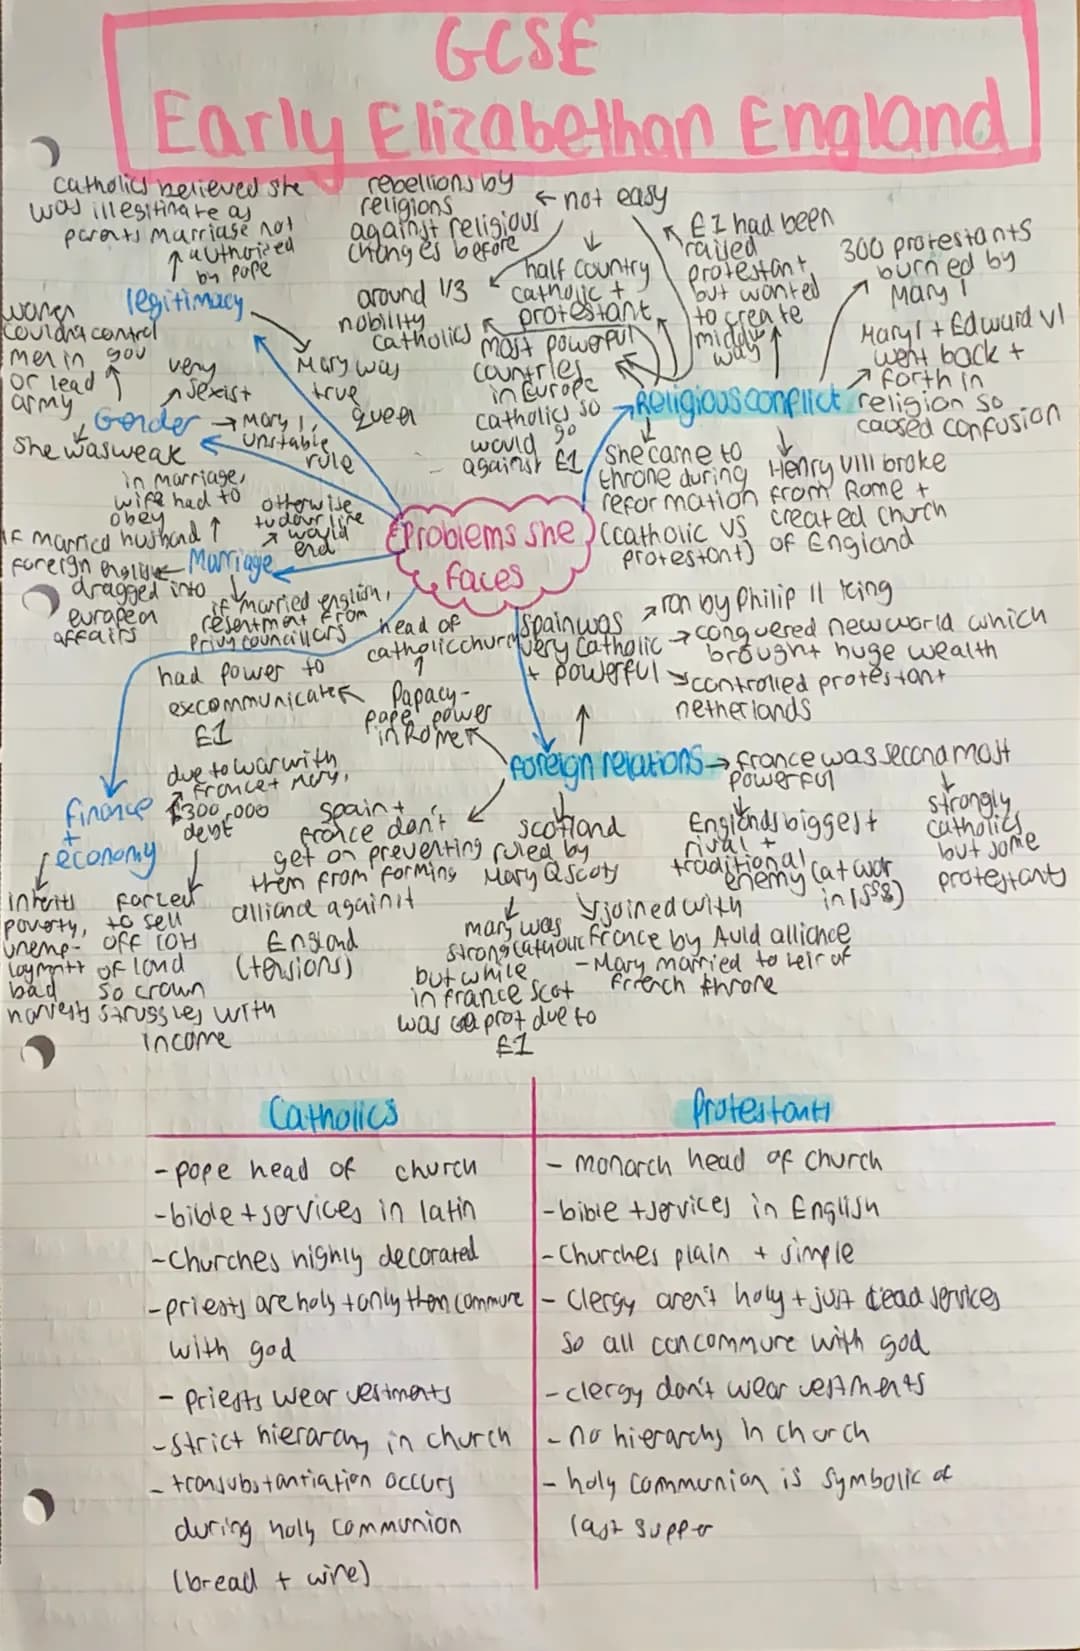 GCSE
Early Elizabethan England
Catholics believed she
was illegitimate as
parents marriage not
authorized
by pope
legitimacy
Mary was
true
queen
rebellions by
religions
against religious
changes before
not easy
around 1/3
nobility
catholics
half country
catholic +
protestant
most powerful
countries
in Europe
catholics so
would go
against E1
E1 had been
raised
protestant,
but wanted
to create
middle
way
300 protestants
burned by
Mary 1
Mary 1 + Edward VI
went back +
forth in
religion so
caused confusion
Religious conflict
she came to
throne during
reformation
(catholic vs
protestant)
Henry VIII broke
from Rome +
created church
of England
women
couldn't control
men in gov
or lead
army
very
sexist
Gender
Mary 1,
unstable
rule
she was weak
in marriage,
wife had to
obey
husband
otherwise
tudor line
would
end
Marriage
if married
foreign england
dragged into
european
affairs
if married english,
resentment from
privy councillors
Problems she
faces
head of
catholic church
had power to
excommunicate
E1
Papacy-
pope power
in Rome
Spain was
very Catholic
+ powerful
ron by Philip II King
conquered new world which
brought huge wealth
controlled protestant
netherlands
foreign relations
france was second most
powerful
Englands biggest
rival +
traditional
enemy (at war
in 1558)
strongly
catholics
but some
protestants
finance
+
economy
due to war with
france + Mary,
£300,000
debt
inherits
poverty,
unemp-
loyment +
bad
harvests
forced
to sell
off lOH
of land
so crown
struggles with
income
Spain +
france don't
get on preventing
them from forming
alliance against
England
(tensions)
Scotland
ruled by
Mary Q Scots
mary was
strong catholic
but while
in france scot
was prot due to
E1
joined with
France by Auld alliance
- Mary married to heir of
french throne
Catholics
- pope head of church
- bible + services in latin
- Churches highly decorated
- priests are holy + only them commune
with god
- priests wear vestments
- strict hierarchy in church
- transubstantiation occurs
during holy communion
(bread + wine)
Protestants
- monarch head of church
- bible + services in English
- Churches plain + simple
- Clergy aren't holy + just lead services
so all can commune with god
- clergy don't wear vestments
- no hierarchy in church
- holy communion is symbolic of
last supper